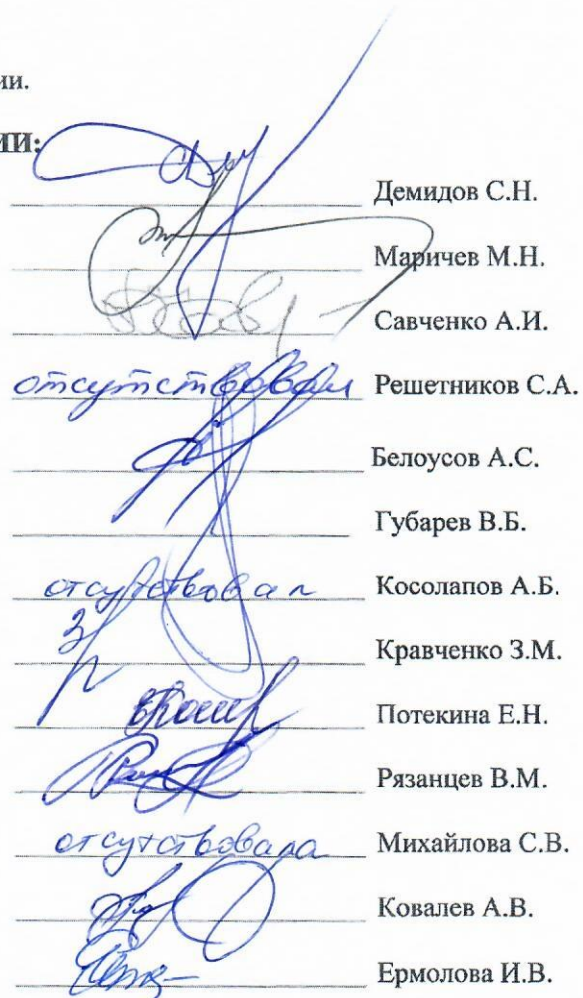 ии.
ИИ:
Демидов С.Н.
Маричев М.Н.
Савченко А.И.
отсутствовал Решетников С.А.
Белоусов А.С.
Губарев В.Б.
отсутствовал Косолапов А.Б.
Кравченко З.М.
Потекина Е.Н.
Рязанцев В.М.
отсутствовала Михайлова С.В.
Ковалев А.В.
Ермолова И.В.